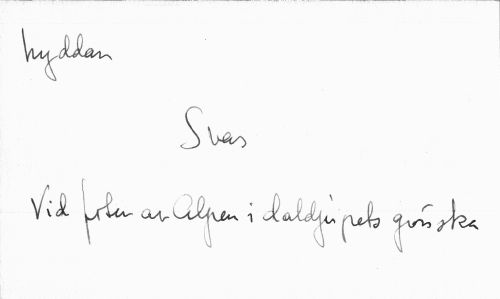 hyddan
Svas
Vid foten av Alpen i daldjupets grönska